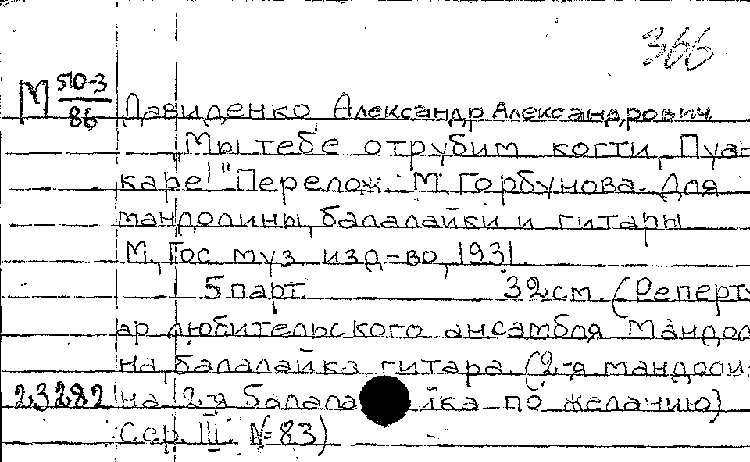 366
М 510-3/86 Давиденко Александр Александрович
"Мы тебе отрубим когти, Пуа-
каре!" Перелож. М. Горбунова. Для
мандолины, балалайки и гитары
М., Гос. муз. изд-во, 1931.
5 парт. 32 см. (Реперту
ар любительского ансамбля Мандол
на, балалайка гитара. (2-я мандоли-
23282 на, 2-я балалайка по желанию)
Сер. III. № 83)